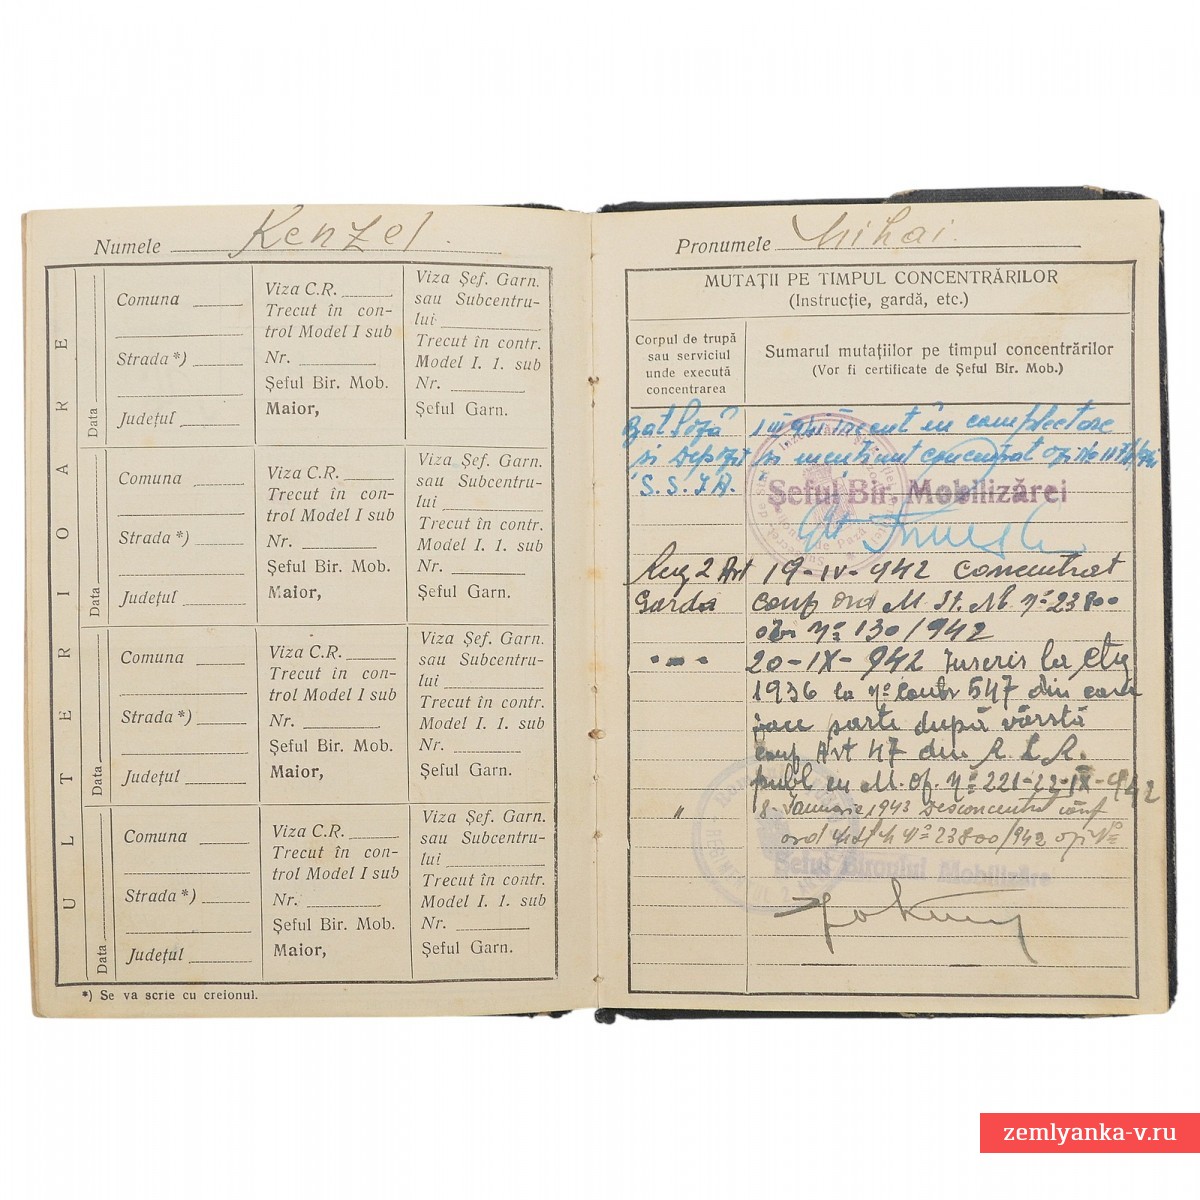 Numele Kenzel.
ULTERIOARE
Data
Comuna
Strada *)
Județul
Viza C.R.
Trecut în con-
trol Model I sub
Nr.
Șeful Bir. Mob.
Maior,
Viza Șef. Garn.
sau Subcentru-
lui
Trecut în contr.
Model I. 1. sub
Nr.
Șeful Garn.
Data
Comuna
Strada *)
Județul
Viza C.R.
Trecut în con-
trol Model I sub
Nr.
Șeful Bir. Mob.
Maior,
Viza Șef. Garn.
sau Subcentru-
lui
Trecut în contr.
Model I. 1. sub
Nr.
Șeful Garn.
Data
Comuna
Strada *)
Județul
Viza C.R.
Trecut în con-
trol Model I sub
Nr.
Șeful Bir. Mob.
Maior,
Viza Șef. Garn.
sau Subcentru-
lui
Trecut în contr.
Model I. 1. sub
Nr.
Șeful Garn.
Data
Comuna
Strada *)
Județul
Viza C.R.
Trecut în con-
trol Model I sub
Nr.
Șeful Bir. Mob.
Maior,
Viza Șef. Garn.
sau Subcentru-
lui
Trecut în contr.
Model I. 1. sub
Nr.
Șeful Garn.
*) Se va scrie cu creionul.
Pronumele Mihai.
MUTAȚII PE TIMPUL CONCENTRĂRILOR
(Instrucție, gardă, etc.)
Corpul de trupă
sau serviciul
unde execută
concentrarea
Sumarul mutațiilor pe timpul concentrărilor
(Vor fi certificate de Șeful Bir. Mob.)
trecut în complectare
și Depozit și menținut concentrat
Șeful Bir. Mobilizărei
2 Art 19-IV-942 Concentrat
Garda conf ord M. St. M. Nº 23800
Nº 130/942
20-IX-942 Inscris la ctg
1936 la Nº contr 547 din care
face parte după vârstă
conf Art 47 din
publ în M. of. Nº 221-22-IX-942
" 8 Ianuarie 1943 Desconcentrat conf
ord Nº 23800/942
Șeful Biroului Mobilizare
zemlyanka-v.ru